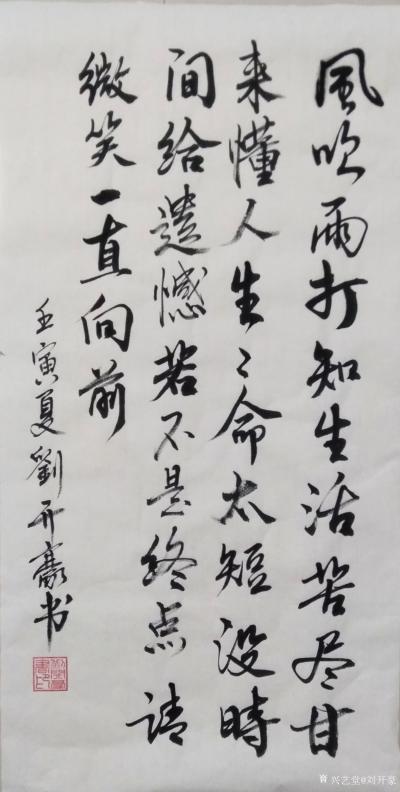 風吹雨打知生活苦尽甘
来懂人生〻命太短没時
间给遗憾若不是终点请
微笑一直向前
壬寅夏劉开豪书
兴艺堂@刘开豪